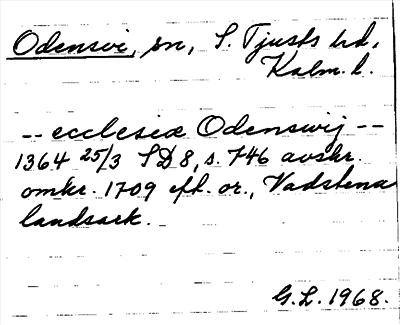 Odensvi, sn, S. Tjusts hd,
Kalm. l.
-- ecclesiæ Odenswij --
1364 25/3 SD 8, s. 746 avskr.
omkr. 1709 eft. or., Vadstena
landsark.
G.L. 1968.